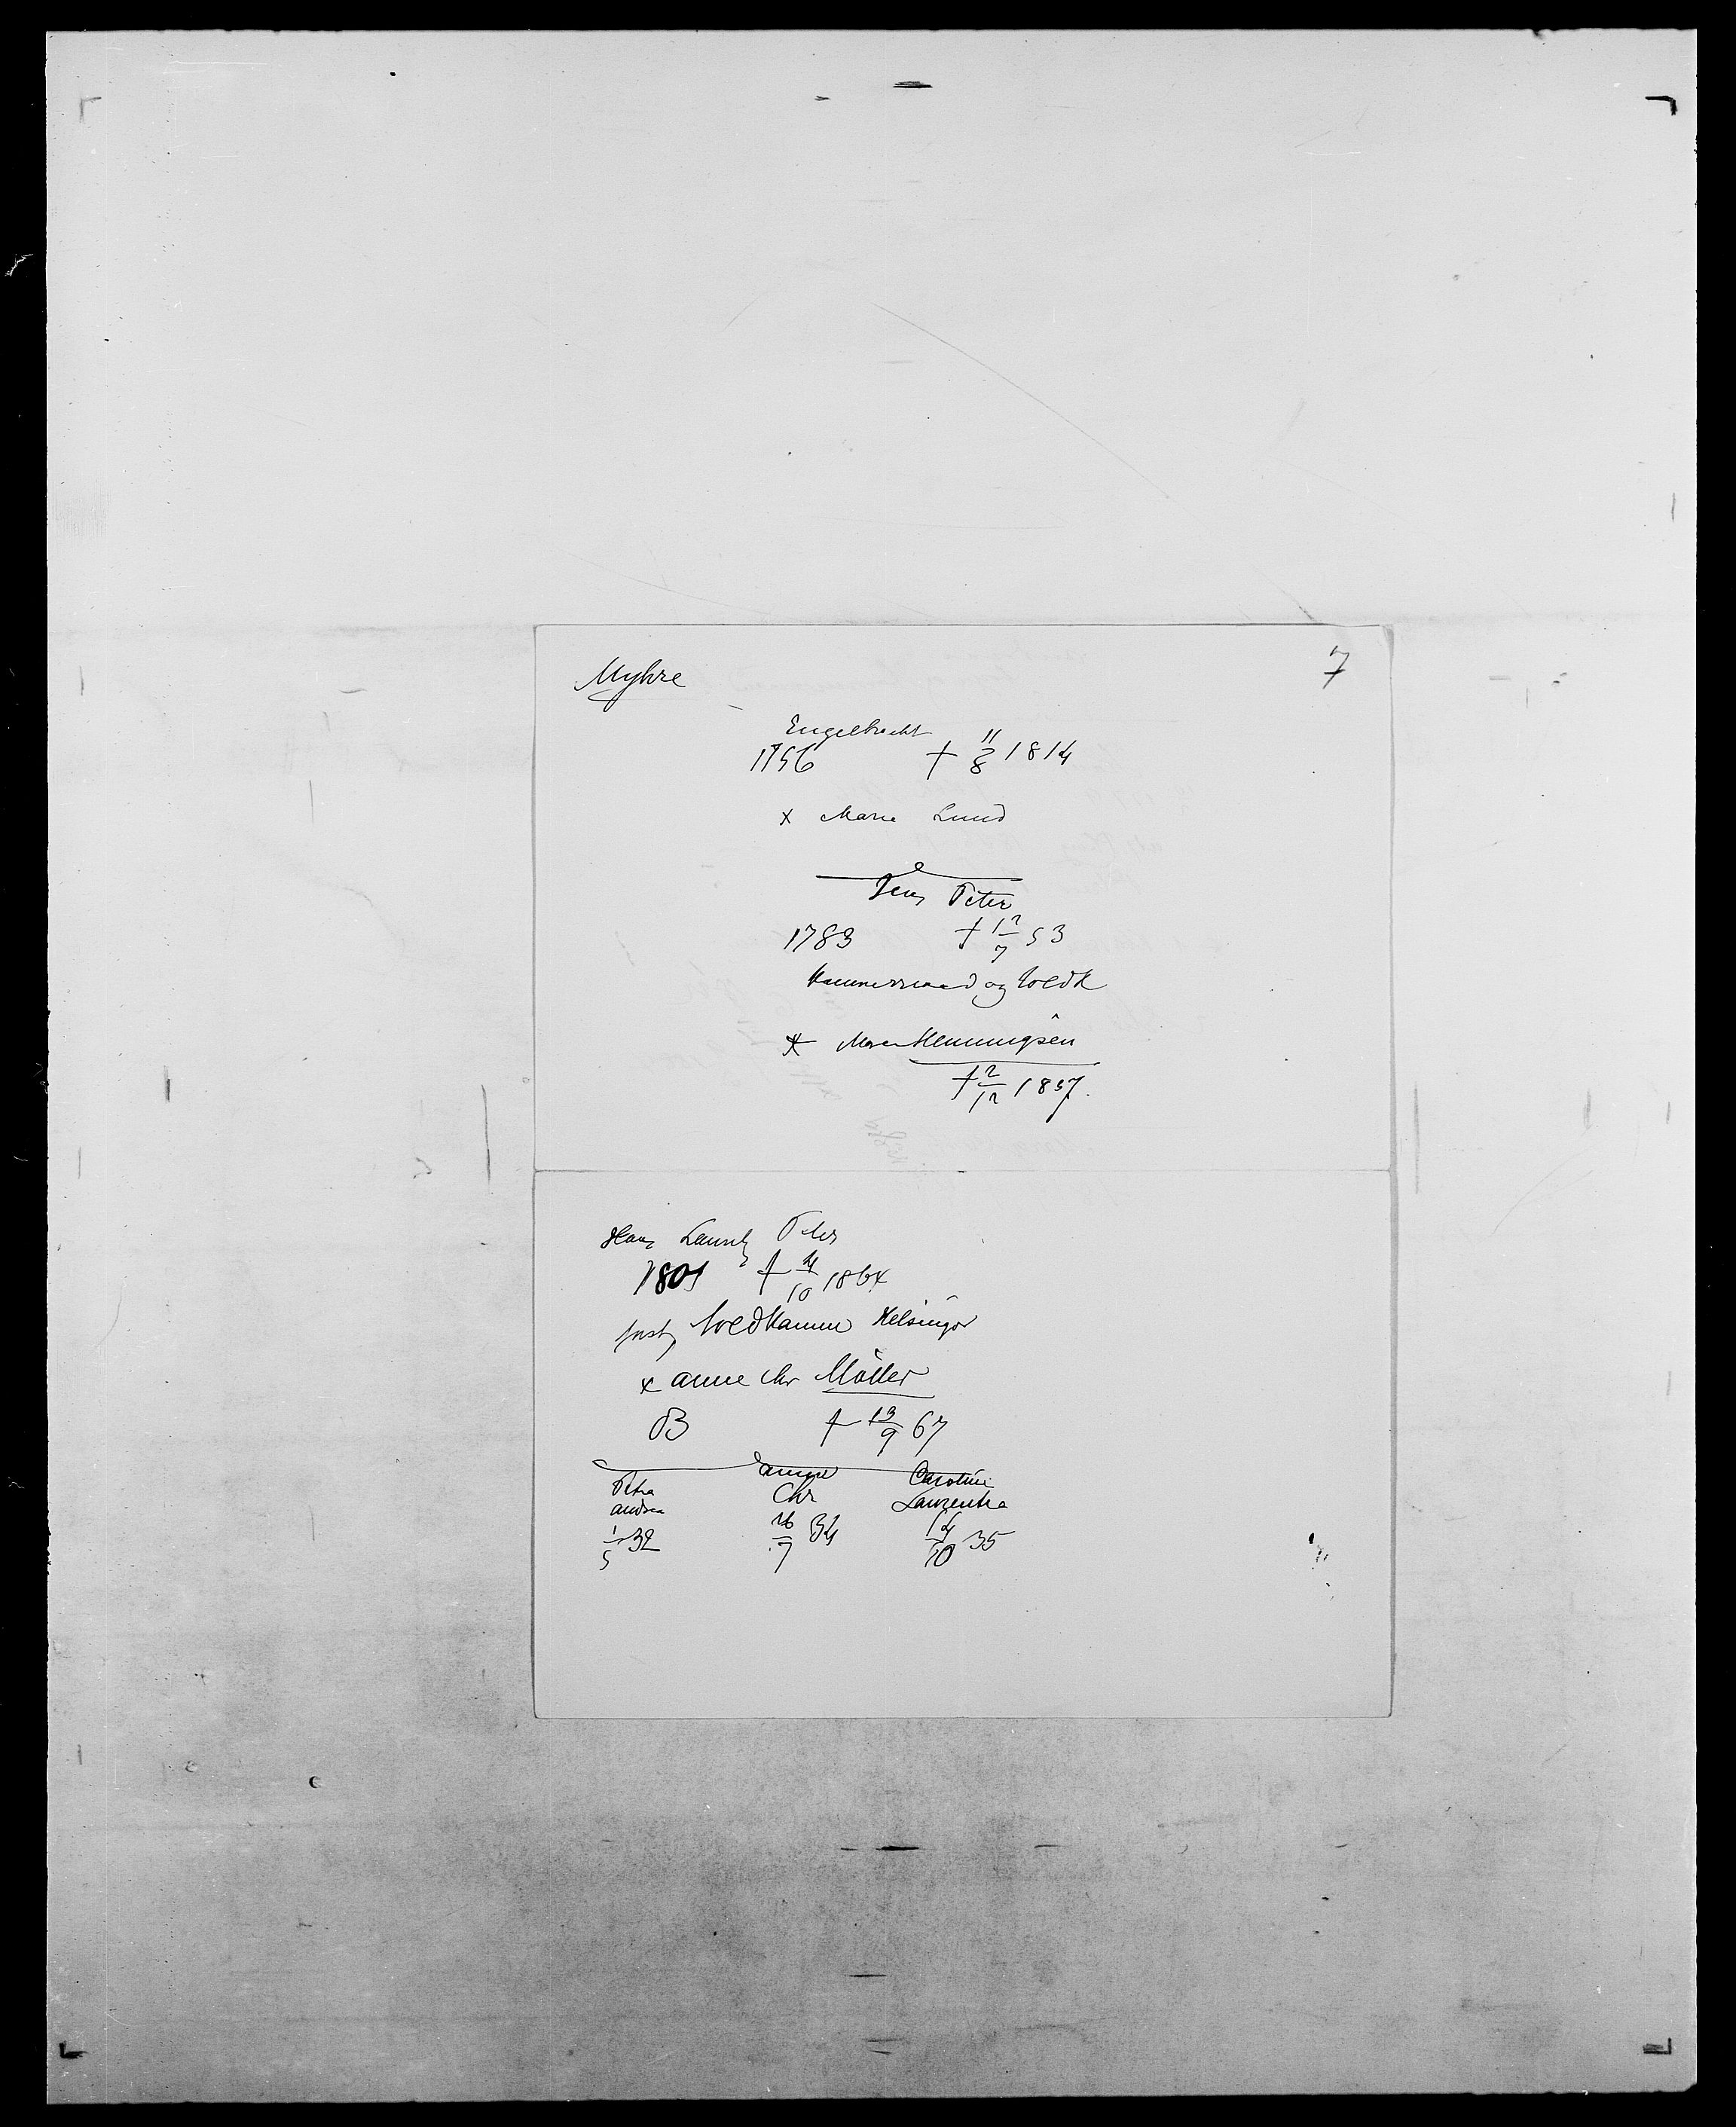 Myhre 7
Engelbrecht
1756 † 11/8 1814
x Marie Lund
Jens Peter
1783 † 12/7 53
Kammerraad og toldk
x Maren Hemmingsen
† 2/12 1857.
Hans Lauritz Peter
1801 † 4/10 1864
just toldkamm Helsingør
x Anne Chr Møller
B † 13/9 67
Petra Anne Caroline
Andrea Chr Laurentia
1/5 32 26/7 34 14/10 35